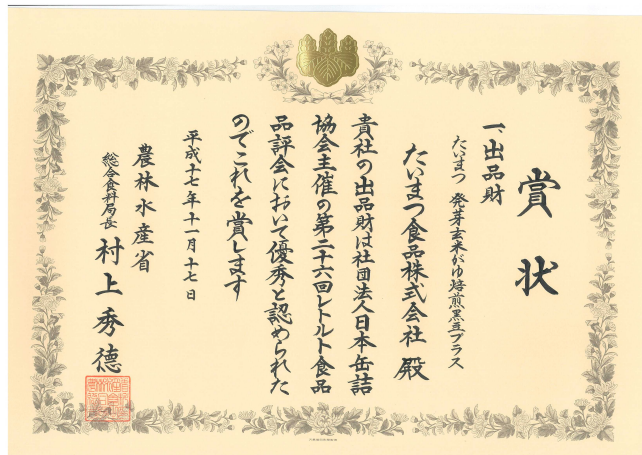 賞状
一、出品財
たいまつ 発芽玄米がゆ焙煎黒豆プラス
たいまつ食品株式会社 殿
貴社の出品財は社団法人日本缶詰
協会主催の第二十六回レトルト食品
品評会において優秀と認められた
のでこれを賞します
平成十七年十一月十七日
農林水産省
総合食料局長 村上秀徳